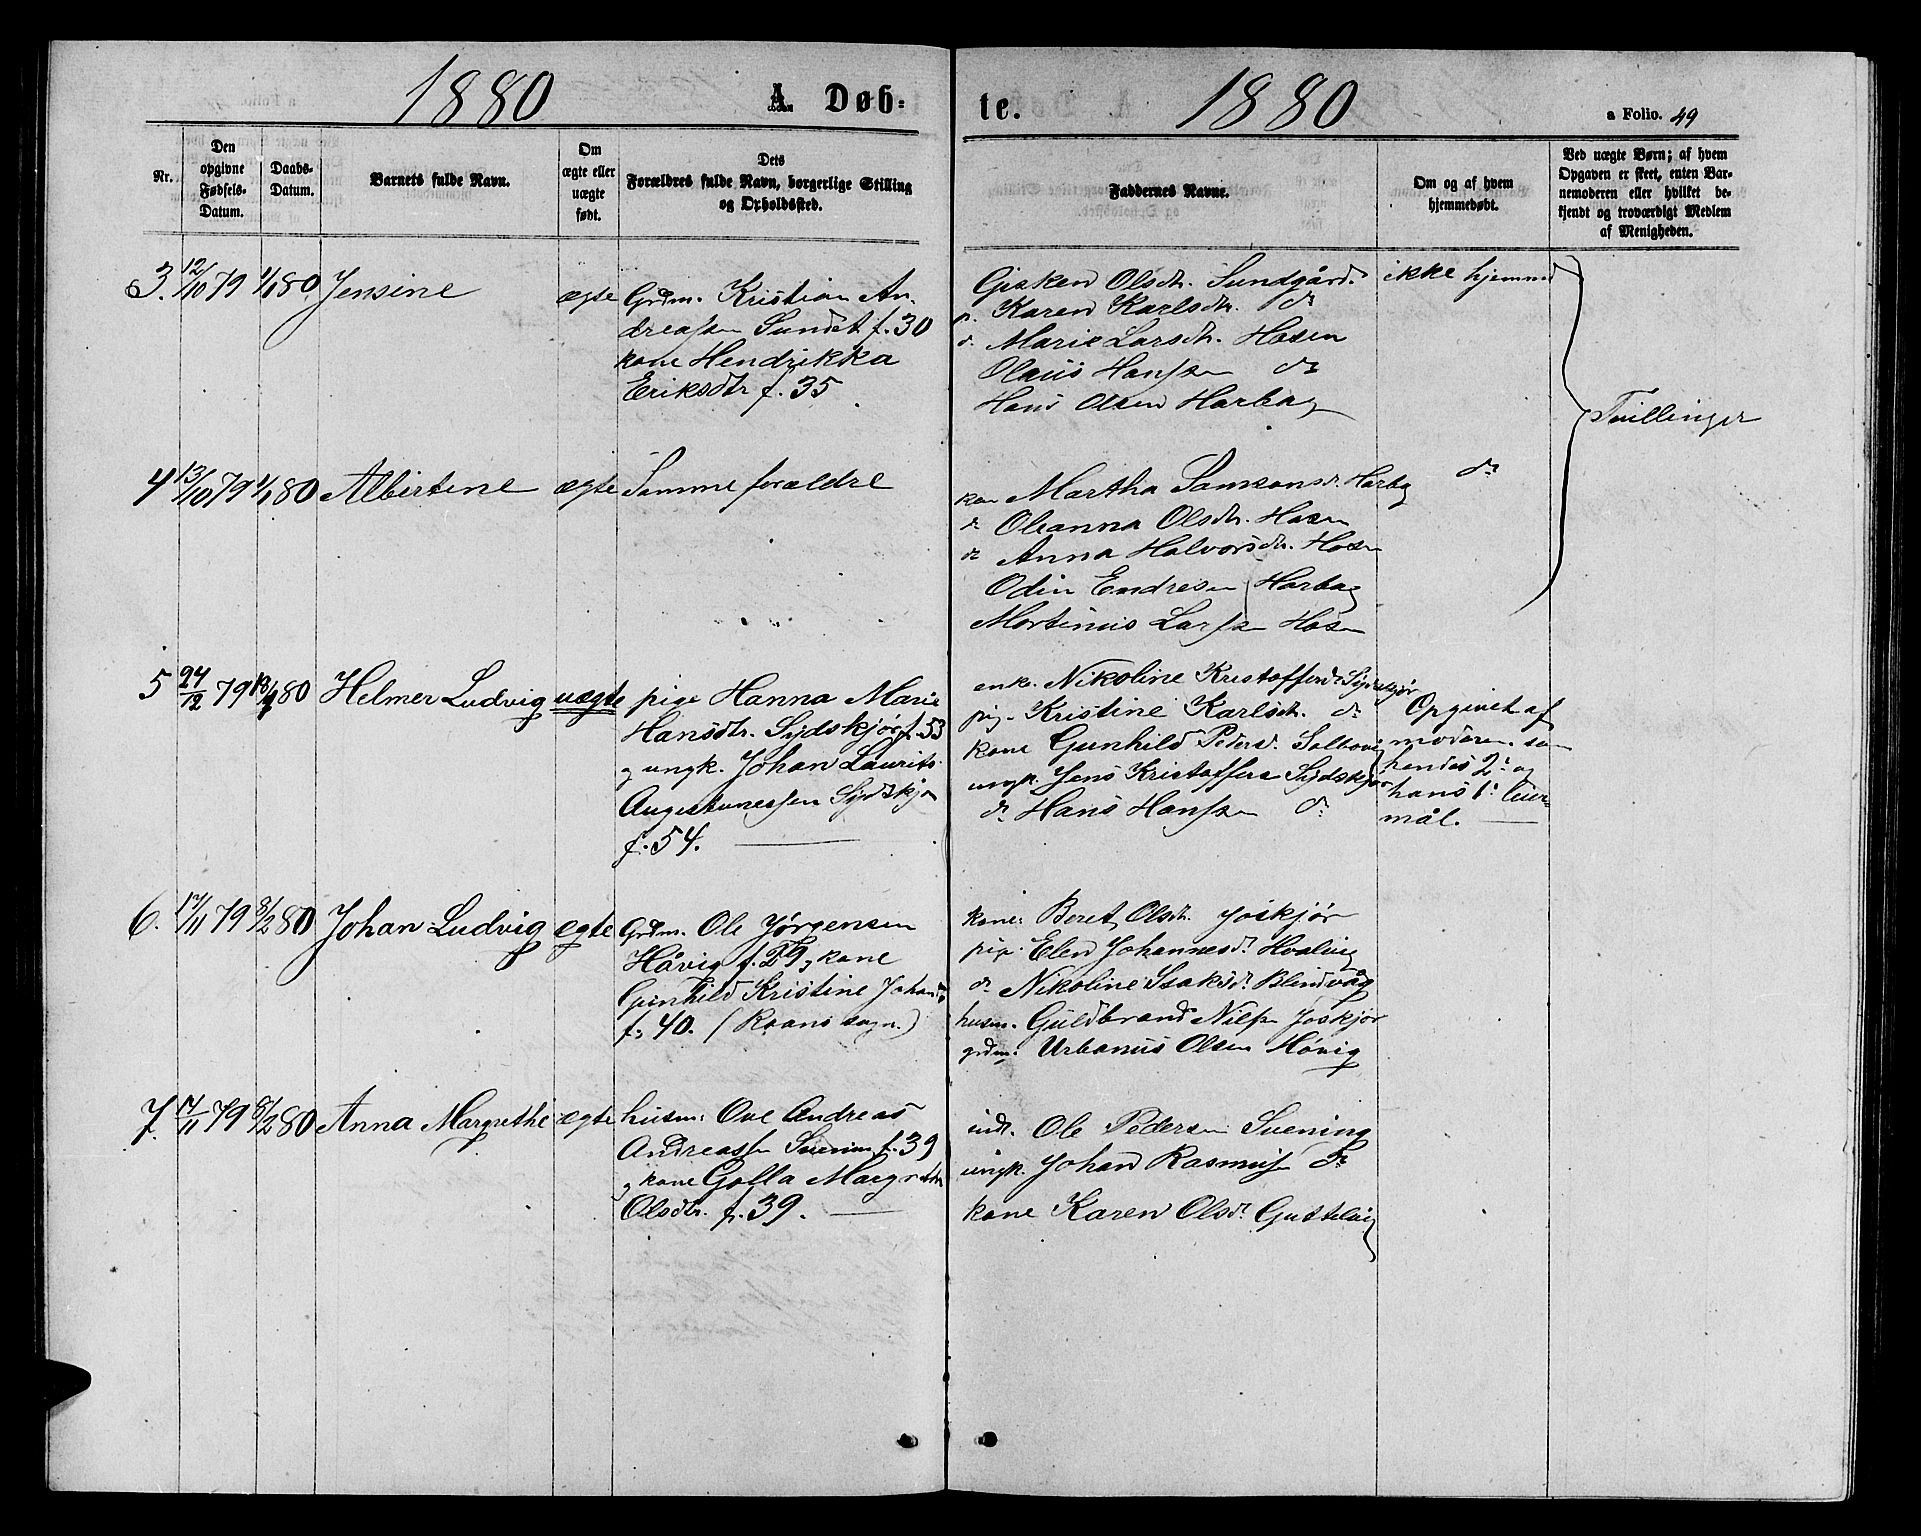 1880 A. Døb-
te. 1880 a Folio. 49
Nr.
Den opgivne Fødsels-Datum.
Daabs-Datum.
Barnets fulde Navn.
Om ægte eller uægte født.
Dets Forældres fulde Navn, borgerlige Stilling og Opholdssted.
Faddernes Navne.
Om og af hvem hjemmedøbt.
Ved uægte Børn; af hvem
Opgaven er skeet, enten Bar-
nemoderen eller hvilket be-
kjendt og troværdigt Medlem
af Menigheden.
3. 12/10 79 1/1 80 Jensine ægte Grdm. Kristian An-
dreassen Sundet f. 30
kone Hendrikka
Eriksdtr f. 35
Gisken Olsdtr. Sundgård.
p. Karen Karlsdtr. do
do Marie Larsdtr. Hosen
Olaus Hanssen do
Hans Olsen Harbag
ikke hjemmed
Tvillinger
4 13/10 79 1/1 80 Albertine ægte Samme forældre
kon Martha Samsonsd. Harbag
do Oleanna Olsdtr. Hosen
do Anna Halvorsdtr. Hosen
Odin Endresen Harbag
Mortinus Larssen Hosen
do
5 24/12 79 18/1 80 Helmer Ludvig uægte pige Hanna Marie
Hansdtr. Sydskjør f. 53
og ungk. Johan Laurits
Augustinussen Sydskjør
f. 54.
enk. Nikoline Kristoffersd. Sydskjør
pig. Kristine Karlsdtr. do
kone Gunhild Pedersd. Saltvig
ungk. Jens Kristoffersen Sydskjør
do Hans Hanssen do
Opgivet af
moderen som
hendes 2det og
hans 1ste leier-
mål.
6. 17/11 79 8/2 80 Johan Ludvig egte Grdm. Ole Jørgensen
Håvig f. 29, kone
Gunhild Kristine Johansd.
f. 40. (Roans sogn.)
kone: Beret Olsdtr. Joskjør
pig. Elen Johannesd. Hvalvig
do Nikoline Isaksd. Blindvåg
husm. Guldbrand Nilssen Joskjør
grdm. Urbanus Olsen Håvig
7. 17/11 79 8/2 80 Anna Margrethe ægte husm: Ove Andreas
Andreassen Svening f. 39
og kone Golla Margrethe
Olsdtr. f. 39.
indr. Ole Pedersen Svening
ungk. Johan Rasmussen do
kone Karen Olsd.